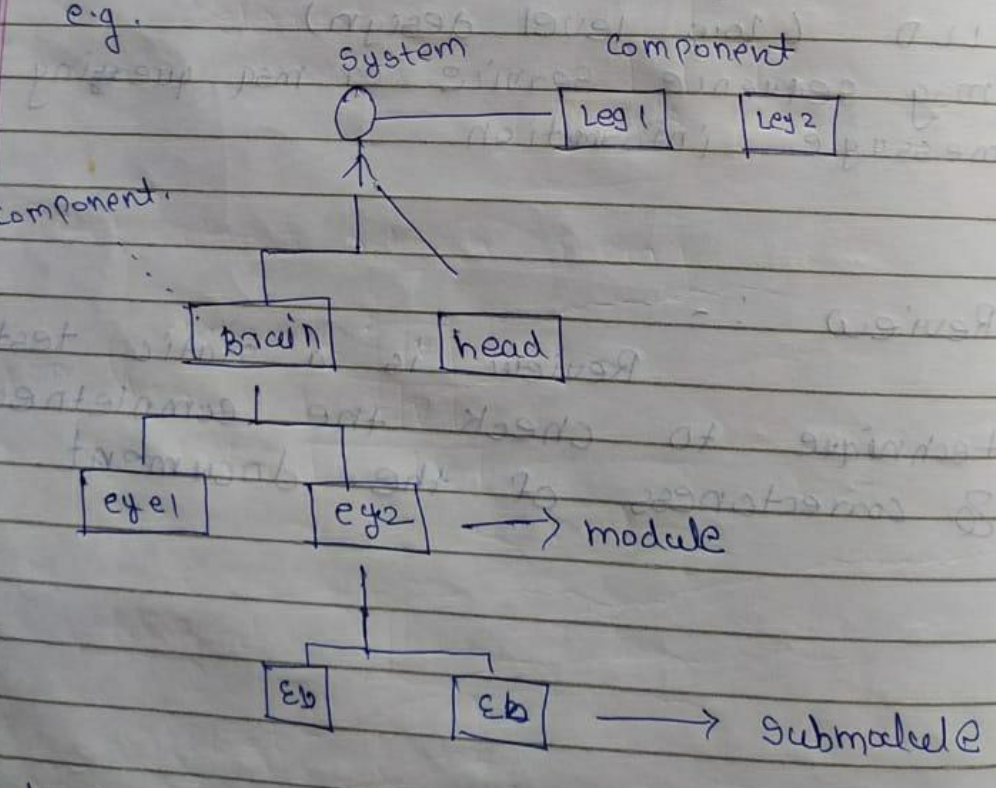 e.g.
System component
Leg 1 Leg 2
component.
Brain head
eye1 ey2 → module
→ submodule